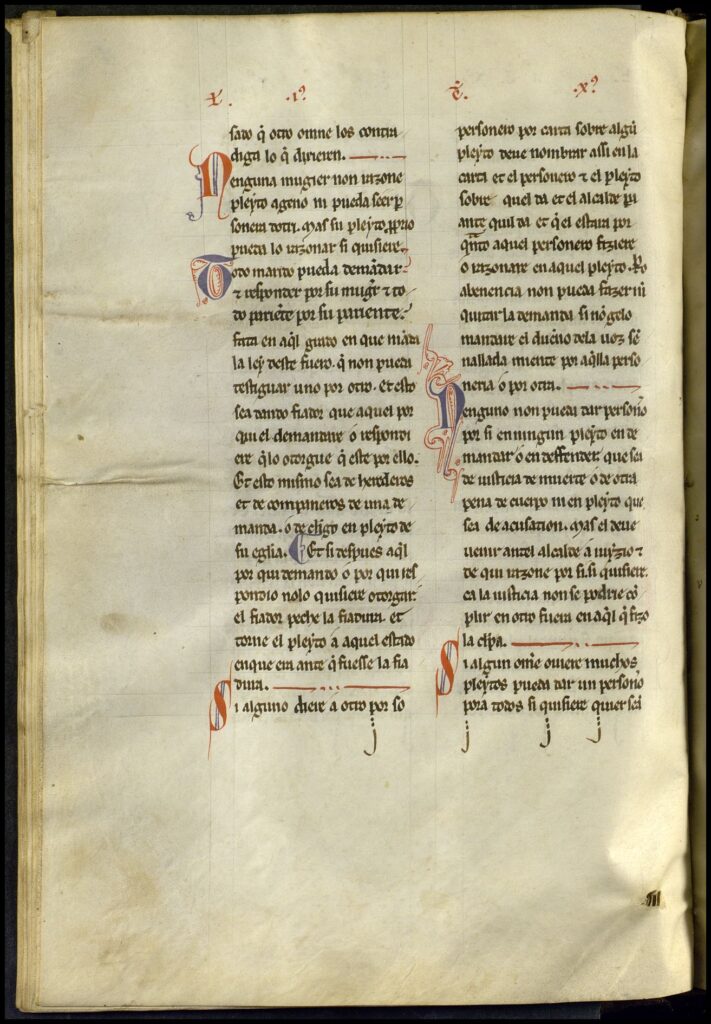 L. .i.º
sado q̃ otro omne los contra
diga lo q̃ dixieren.
Nenguna mugier non razone
pleẏto ageno ni pueda seer p̲
sonera dotri. Mas su pleẏto p̲prio
pueda lo razonar si quisiere.
Todo marido pueda demãdar
⁊ responder por su mugr̃ ⁊ to
do pariẽte por su pariente.
fata en aq̃l grado en que mãda
la leẏ deste fuero. q̃ non pueda
testiguar uno por otro. Et esto
sea dando fiador que aquel por
qui el demandare ó respondi
ere q̃lo otorgue q̃ este por ello.
Et esto mismo sea de herederos
et de companeros de una de
manda. o de cligo en pleẏto de
su eglia. Et si despues aq̃l
por qui demando ó por qui res
pondio nolo quisiere otorgar.
el fiador peche la fiadura. et
torne el pleẏto a aquel estado
enque era ante q̃ fuesse la fia
dura.
Si alguno diere a otro por so
T̃. .x.º
personero por carta sobre algũ
pleẏto deve nombrar assi en la
carta et el personero ⁊ el pleẏto
sobre quel da et el alcalde p̲
ante quil da et q̃el estara por
qñto aquel personero fiziere
o razonare en aquel pleẏto. No
abenencia non pueda fazer ni
quitar la demanda si nõgelo
mandare el dueno dela uoz se
nallada miente por aq̃lla perso
neria ó por otra.
Nenguno non pueda dar personõ
por si en ningun pleẏto en de
mandar ó en deffender. que sea
de iusticia de muerte ó de otra
pena de cuerpo ni en pleẏto que
sea de acusation. Mas el deve
uenir antel alcalde a iuẏzio ⁊
de qui razone por si. si quisiere.
ca la iusticia non se podrie cõ
plir en otro fuera en aq̃l q̃ fizo
la clpa.
Si algun om̃e oviere muchos
pleẏtos pueda dar un personõ
pora todos si quisiere quier sea